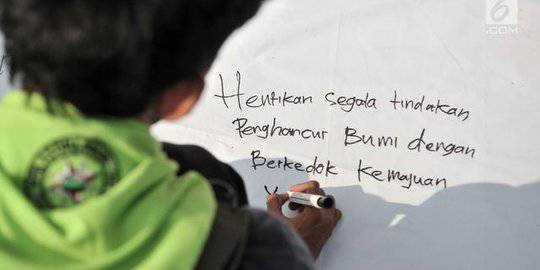 6
.COM
Hentikan segala tindakan
Penghancur Bumi dengan
Berkedok Kemajuan